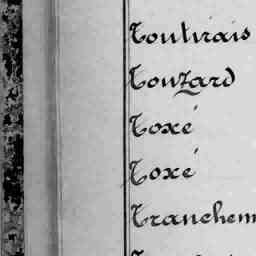 Toutirais
Touzard
Toxé
Toxé
Tranchem